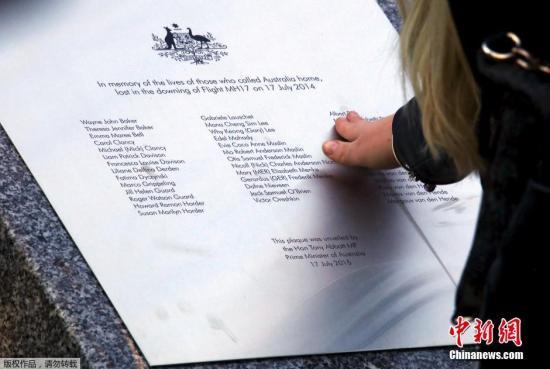 In memory of the lives of those who called Australia home,
lost in the downing of Flight MH17 on 17 July 2014
Wayne John Baker
Theresa Jennifer Baker
Emma Maree Bell
Carol Clancy
Michael (Mick) Clancy
Liam Patrick Davison
Francesca Louise Davison
Liliane Derden
Fatima Dyczynski
Marco Grippeling
Jill Helen Guard
Roger Watson Guard
Howard Ramon Horder
Susan Marilyn Horder
Gabriele Lauschet
Mona Cheng Sim Lee
Why Keong (Gary) Lee
Edel Mahady
Evie Coco Anne Maslin
Mo Robert Anderson Maslin
Otis Samuel Frederick Maslin
Nicoll (Nick) Charles Anderson
Mary (MER) Elizabeth Menke
Gerardus (GER) Frederik Menke
Dafne Nieveen
Jack Samuel O'Brien
Victor Oreshkin
van den Hende
This plaque was unveiled by
the Hon Tony Abbott MP
Prime Minister of Australia
17 July 2015
版权作品 请勿转载
中新网
Chinanews.com